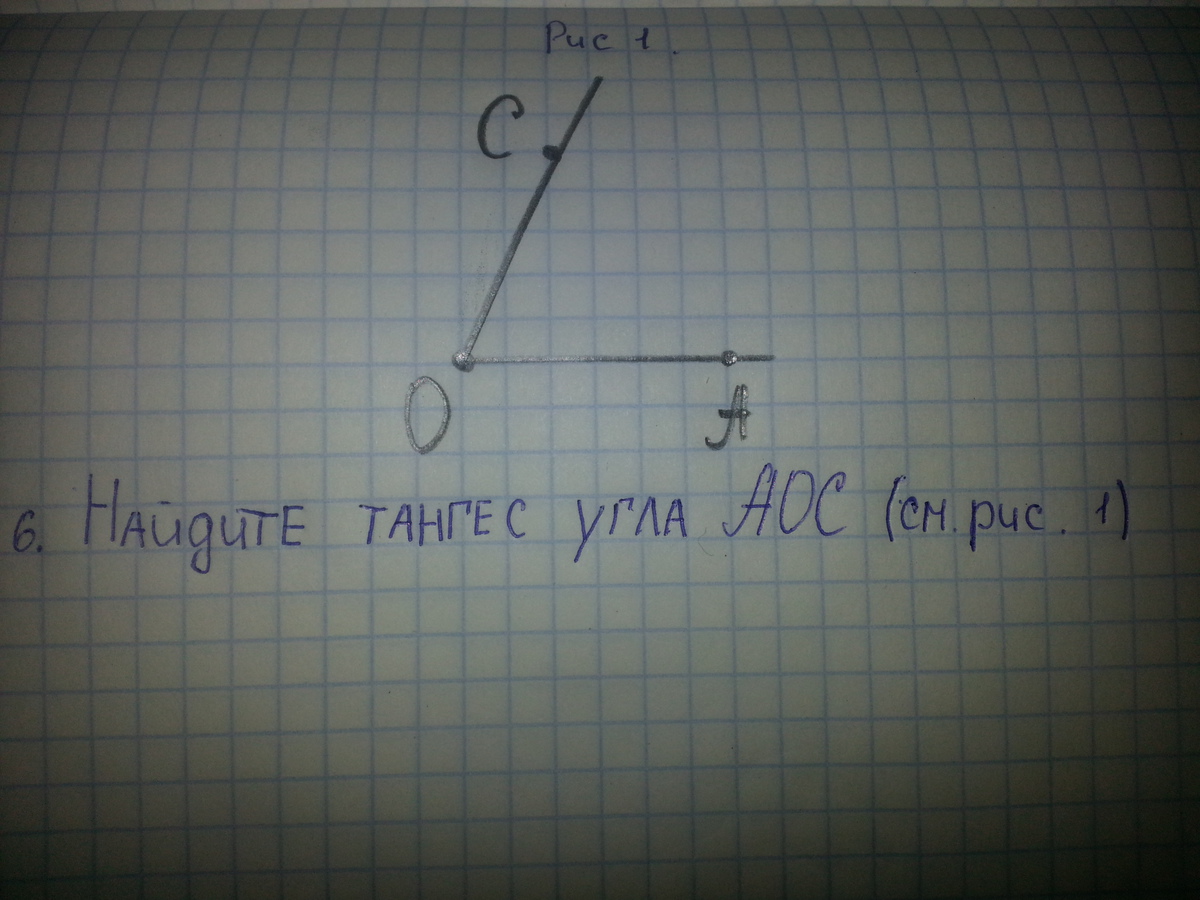 Рис 1.
C
O
A
6. Найдите тангес угла AOC (см. рис. 1)